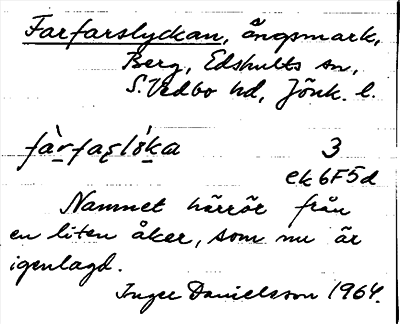 Farfarslyckan, ängsmark,
Berg, Edshults sn,
S. Vedbo hd, Jönk. l.
fàrfaşlóka 3
ek 6F5d
Namnet härrör från
en liten åker, som nu är
igenlagd.
Inger Danielsson 1964.